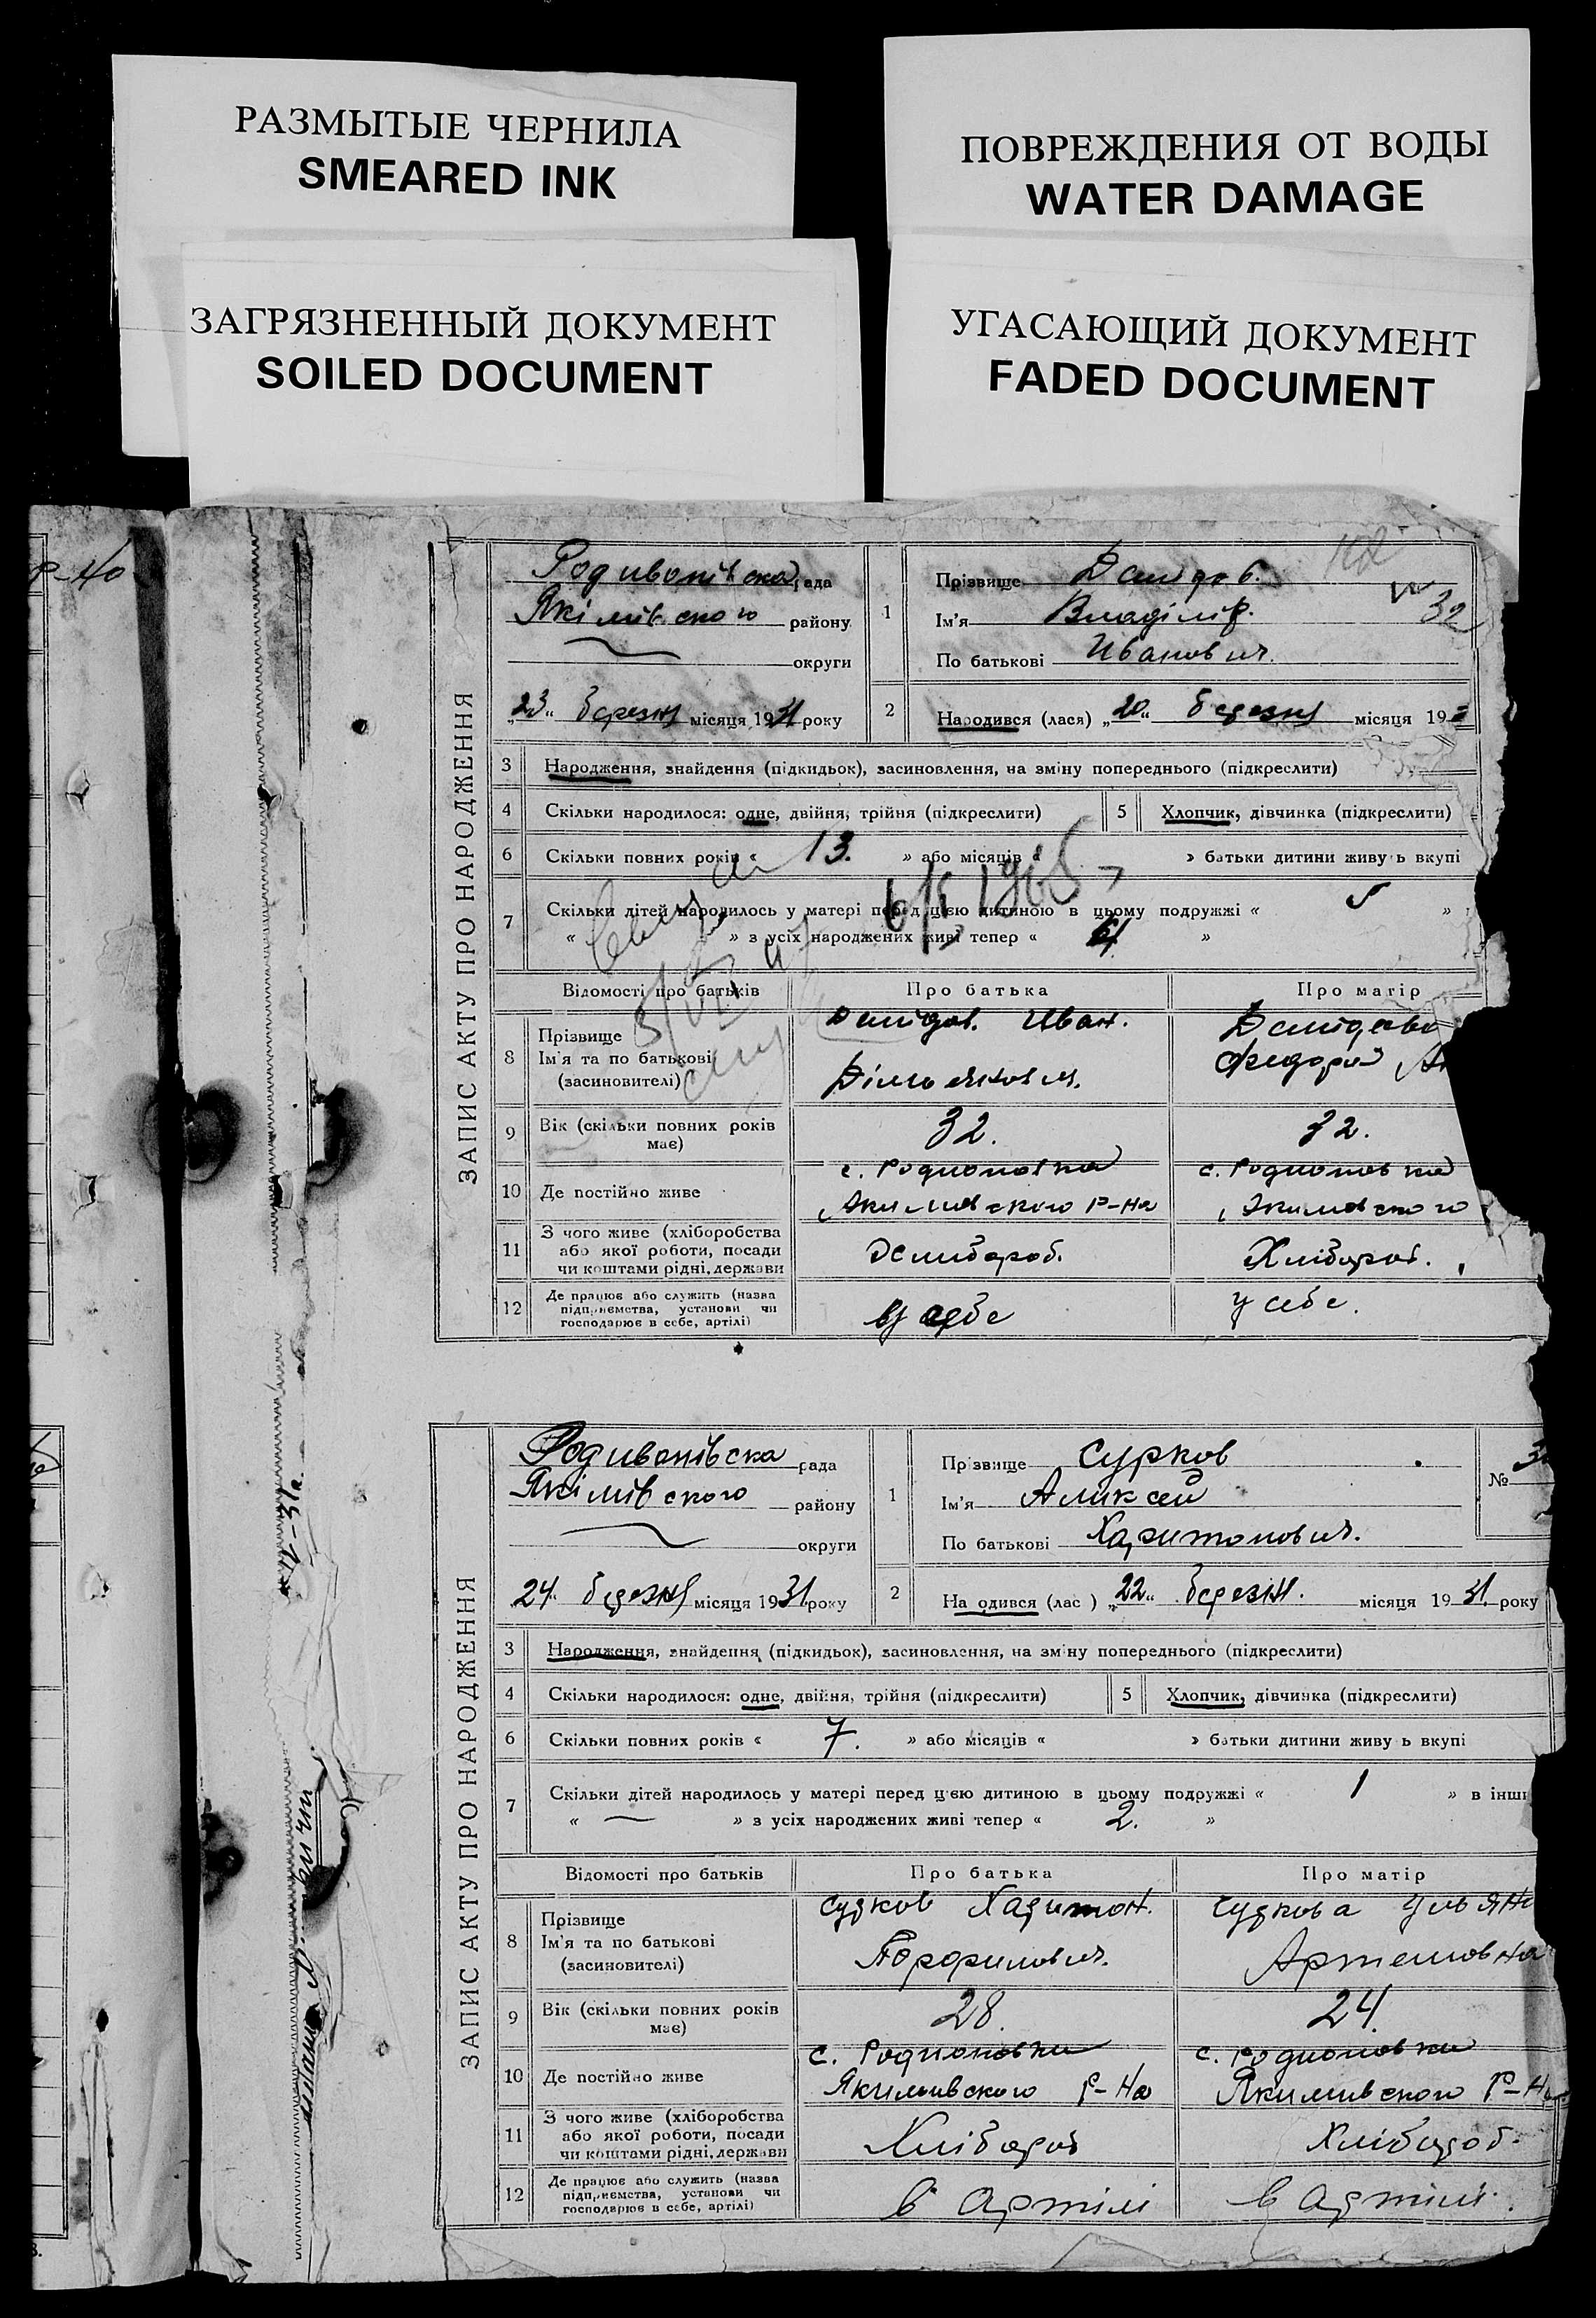 РАЗМЫТЫЕ ЧЕРНИЛА
SMEARED INK
ПОВРЕЖДЕНИЯ ОТ ВОДЫ
WATER DAMAGE
ЗАГРЯЗНЕННЫЙ ДОКУМЕНТ
SOILED DOCUMENT
УГАСАЮЩИЙ ДОКУМЕНТ
FADED DOCUMENT
р-но
ЗАПИС АКТУ ПРО НАРОДЖЕННЯ
Родивонівска рада
Якімівского району
округи
„23“ березня місяця 1931 року
1
Прізвище Демідов.
Ім'я Владімір.
По батькові Иванович.
32
2 Народився (лася) „20“ березня місяця 193
3 Народження, знайдення (підкидьок), засиновлення, на зміну попереднього (підкреслити)
4 Скільки народилося: одне, двійня, трійня (підкреслити)
5 Хлопчик, дівчинка (підкреслити)
6 Скільки повних років « 13. » або місяців « » батьки дитини живуь вкупі
7 Скільки дітей народилось у матері перед цією дитиною в цьому подружжі « 5 »
« » з усіх народжених живі тепер « »
6/X 1965
Відомості про батьків
Про батька
Про матір
8 Прізвище
Ім'я та по батькові
(засновителі)
Демідов. Иван.
Демідова
Федора
9 Вік (скільки повних років має)
32.
32.
10 Де постійно живе
с. Родионовка
Акимовского р-на
с. Родионовка
Якимовского
11 З чого живе (хліборобства або якої роботи, посади чи коштами рідні, держави
Хлибороб.
Хлібороб.
12 Де працює або служить (назва підприємства, установи чи господарює в себе, артілі)
у себе
у себе.
ЗАПИС АКТУ ПРО НАРОДЖЕННЯ
Родивонівска рада
Якімівского району
округи
24“ березня місяця 1931 року
1
Прізвище Сурков
Ім'я Аликсей
По батькові Харитонович.
№
2 На одився (лас ) „22“ березня. місяця 1931. року
3 Народження, знайдення (підкидьок), засиновлення, на зміну попереднього (підкреслити)
4 Скільки народилося: одне, двійня, трійня (підкреслити)
5 Хлопчик, дівчинка (підкреслити)
6 Скільки повних років « 7. » або місяців « » батьки дитини живу ь вкупі
7 Скільки дітей народилось у матері перед цією дитиною в цьому подружжі « 1 » в інш
« — » з усіх народжених живі тепер « 2. »
Відомості про батьків
Про батька
Про матір
8 Прізвище
Ім'я та по батькові
(засиновителі)
Сурков Харитон.
Порфирович.
Суркова Ульян
Артемовна
9 Вік (скільки повних років має)
28.
24.
10 Де постійно живе
с. Родионовки
Якимивского р-на
с. Родионовки
Якимивского р-н
11 З чого живе (хліборобства або якої роботи, посади чи коштами рідні, держави
Хлібороб
Хлібороб.
12 Де працює або служить (назва підприємства, установи чи господарює в себе, артілі)
в артілі
в артілі.